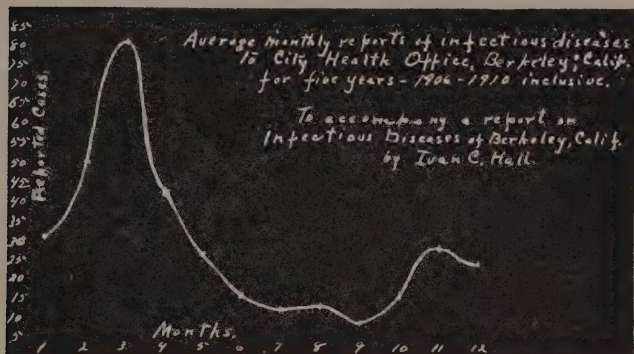 Average monthly reports of infectious diseases
to City Health Office, Berkeley, Calif.
for five years - 1906-1910 inclusive.
To accompany a report on
Infectious Diseases of Berkeley, Calif.
by Ivan C. Hall.
Reported Cases.
85
80
75
70
65
60
55
50
45
40
35
30
25
20
15
10
5
Months.
1 2 3 4 5 6 7 8 9 10 11 12